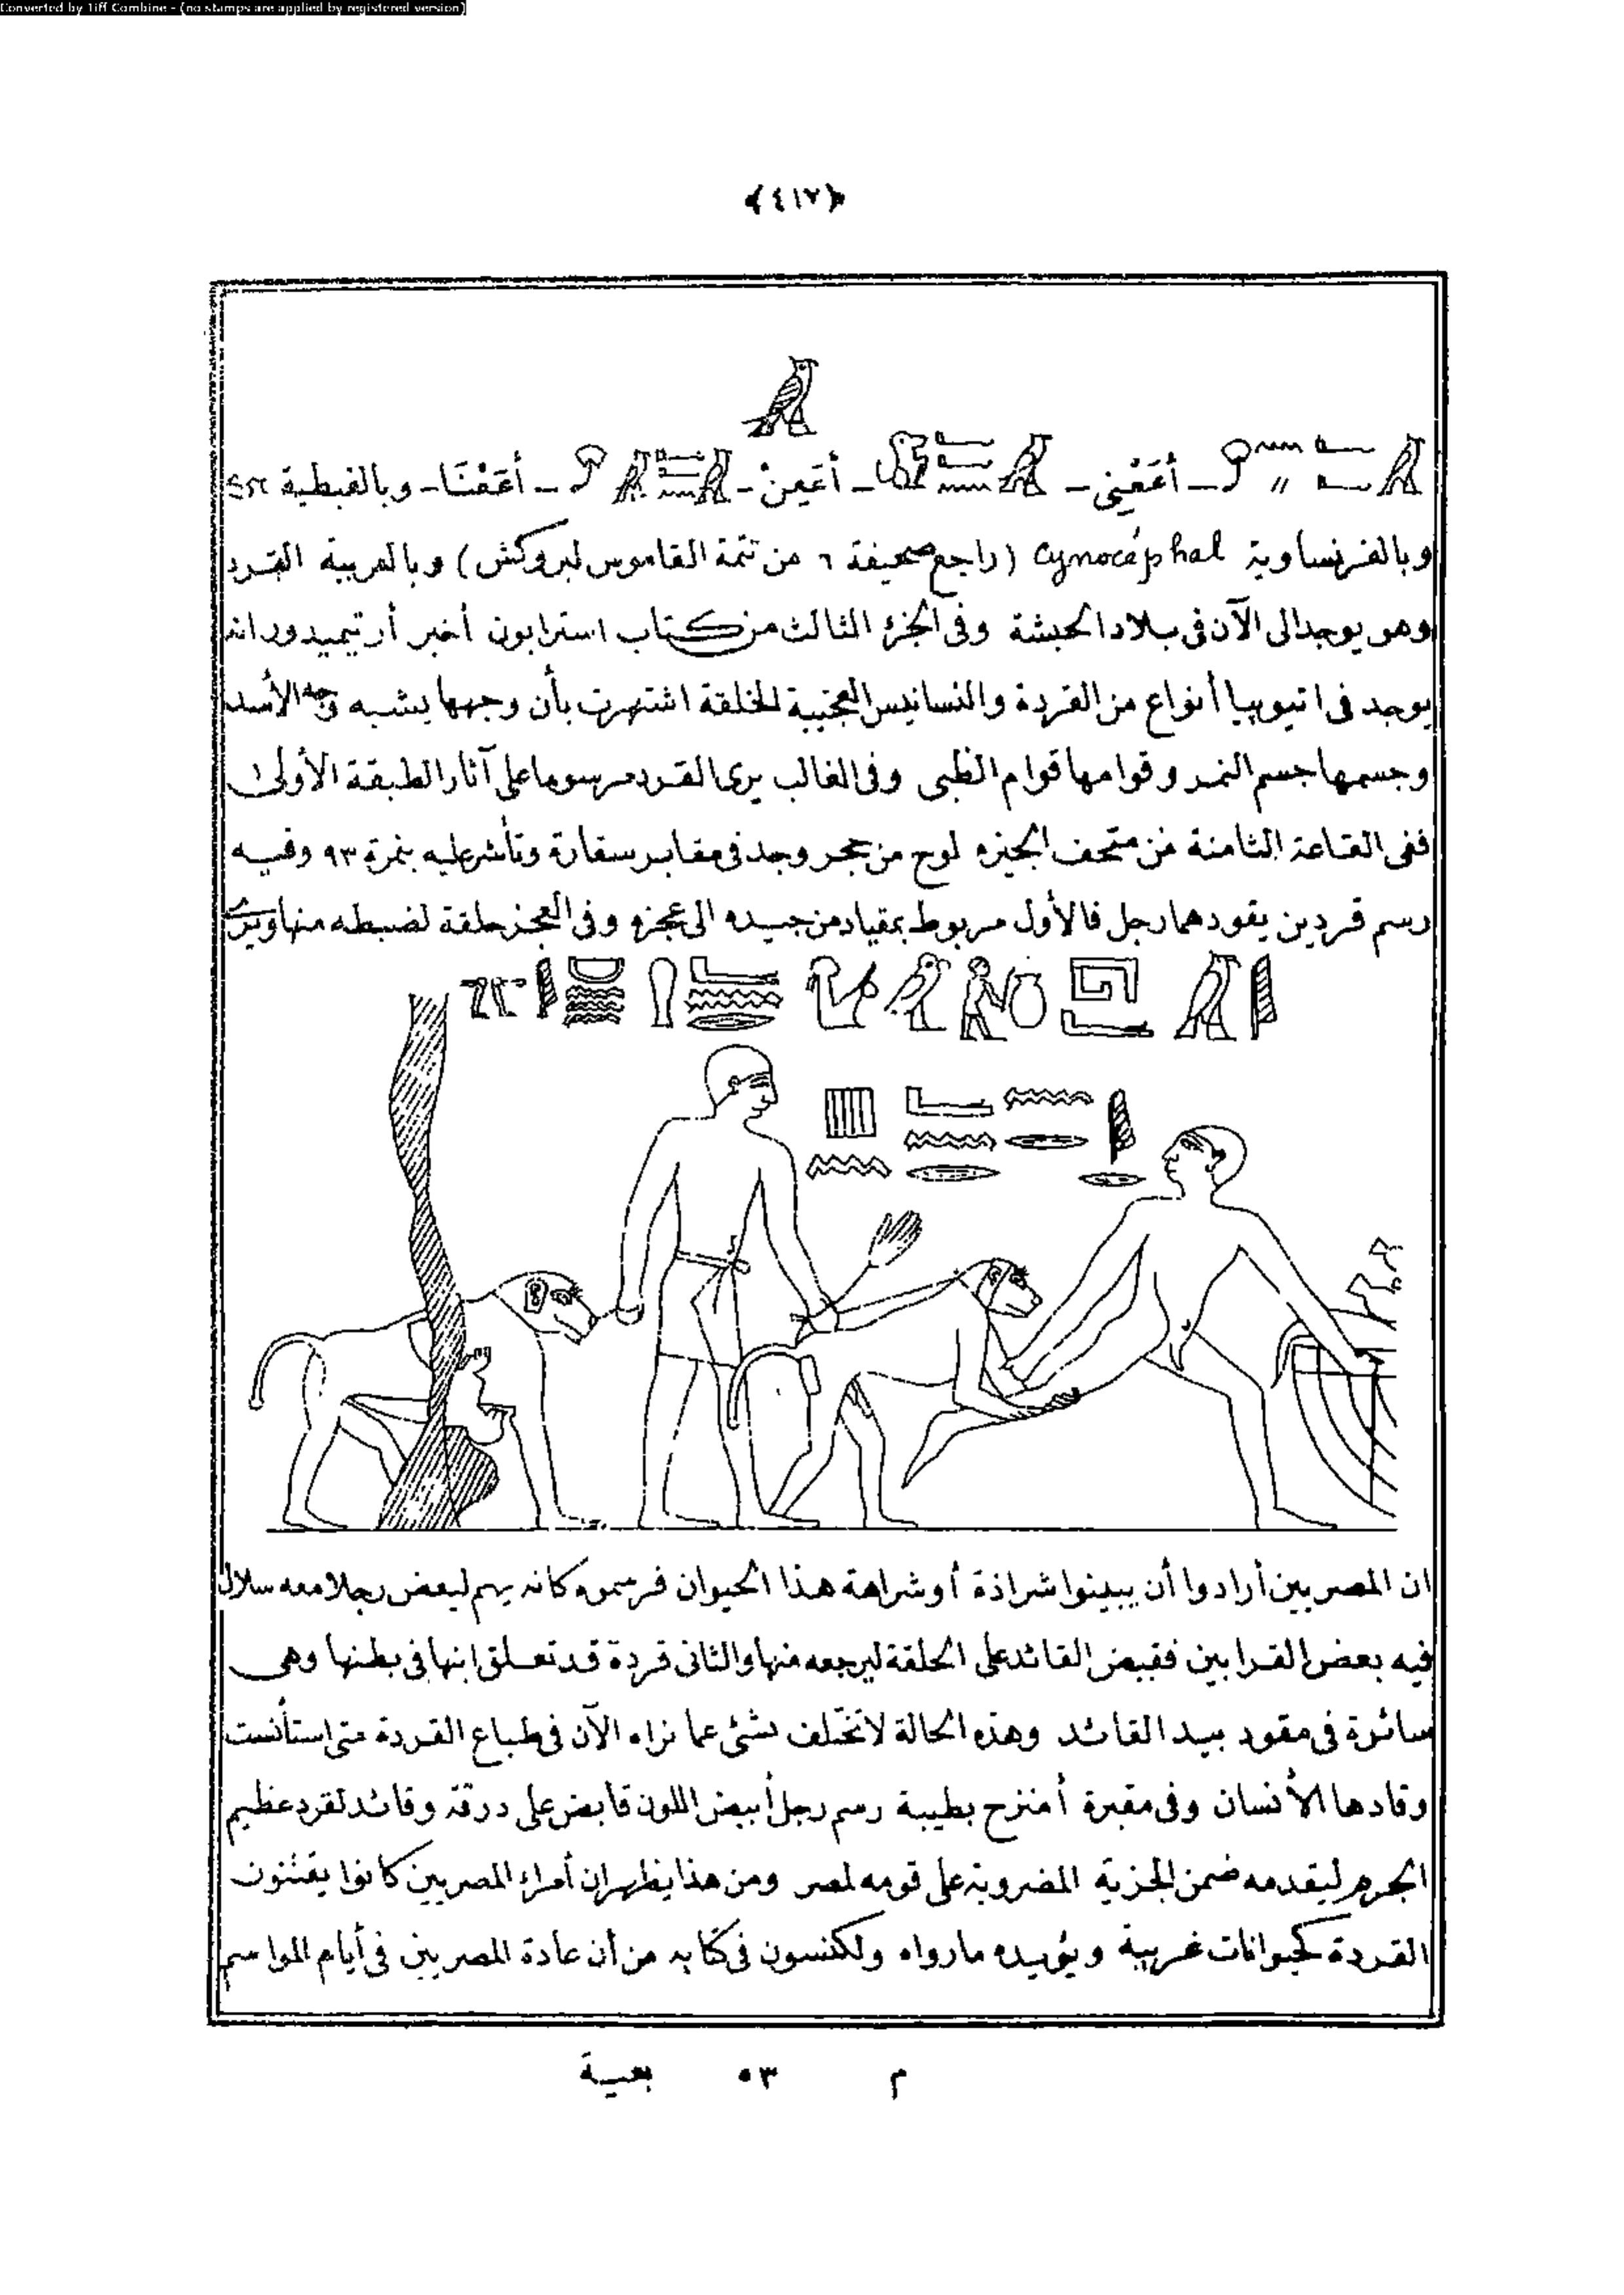 Converted by Tiff Combine - (no stamps are applied by registered version)
﴿٤١٧﴾
ـ أَعَعْنِي ـ ـ أَعَعِنْ ـ ـ أَعَعْنَا ـ وبالقبطية
وبالفرنساوية Cynocéphal (راجع صحيفة ٦ من تتمة القاموس لبروكش) وبالعربية القرد
وهو يوجد الى الآن فى بلاد الحبشة وفى الجزء الثالث من كتاب استرابون أخبر أرتيميدور انه
يوجد فى اتيوبيا أنواع من القردة والنسانيس العجيبة الخلقة اشتهرت بأن وجهها يشبه وجه الأسد
وجسمها جسم النمر وقوامها قوام الظبى وفى الغالب يرى القرد مرسوما على آثار الطبقة الأولى
ففى القاعة الثامنة من متحف الجيزه لوح من حجر وجد فى مقابر سقارة وتأشر عليه بنمرة ٩٣ وفيه
رسم قردين يقودهما رجل فالأول مربوط بمقياد من جيده الى عجزه وفى العجز حلقة لضبطه منها ويرى
ان المصريين أرادوا أن يبينوا شراذة أو شراهة هذا الحيوان فرسموه كانه يهم ليعض رجلا معه سلال
فيه بعض القرابين فقبض القائد على الحلقة ليرجعه منها والثانى قردة قد تعلق ابنها فى بطنها وهى
سائرة فى مقود بيد القائد وهذه الحالة لا تختلف بشئ عما نراه الآن فى طباع القردة متى استأنست
وقادها الأنسان وفى مقبرة أمنزح بطيبة رسم رجل أبيض اللون قابض على درقة وقائد لقرد عظيم
الجرم ليقدمه ضمن الجزية المضروبة على قومه لمصر ومن هذا يظهر ان أمراء المصريين كانوا يقتنون
القردة كحيوانات غريبة ويؤيده مارواه ولكنسون فى كتابه من أن عادة المصريين فى أيام المواسم
م ٥٣ بعية